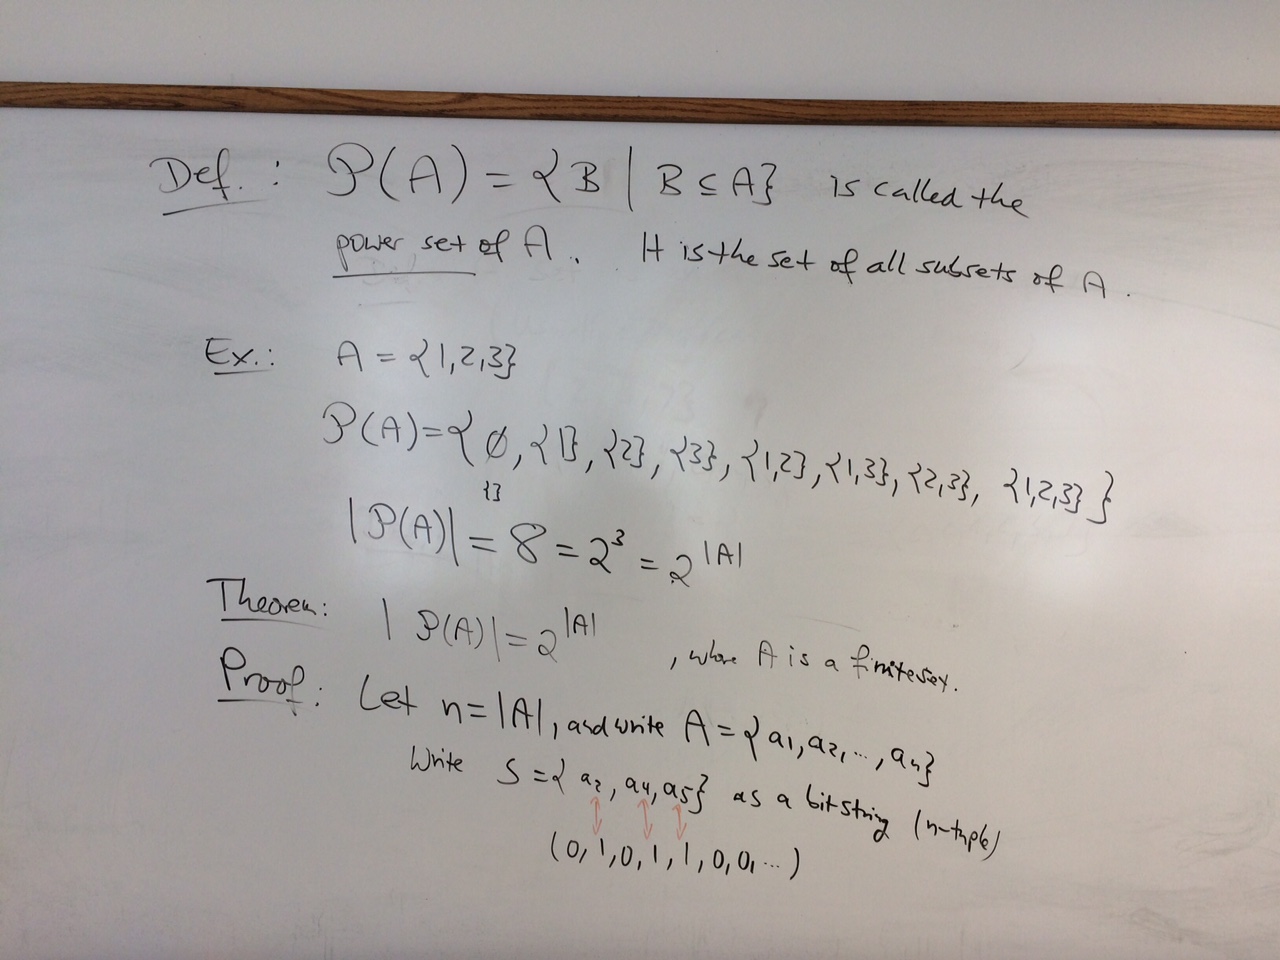 Def.: P(A) = {B | B ⊆ A} is called the
power set of A. It is the set of all subsets of A.
Ex.: A = {1,2,3}
P(A) = {∅, {1}, {2}, {3}, {1,2}, {1,3}, {2,3}, {1,2,3}}
{}
|P(A)| = 8 = 2³ = 2^|A|
Theorem: |P(A)| = 2^|A| , where A is a finite set.
Proof: Let n = |A|, and write A = {a₁, a₂, ..., aₙ}
Write S = {a₂, a₄, a₅} as a bit string (n-tuple)
(0, 1, 0, 1, 1, 0, 0, ...)